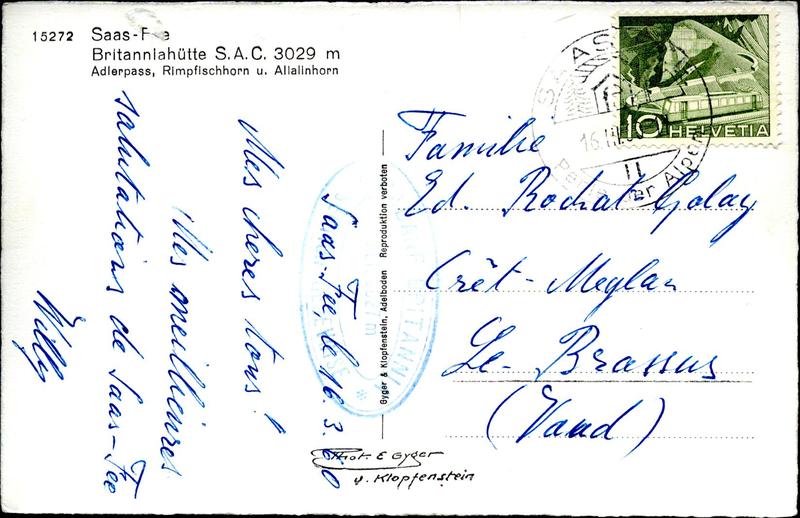 15272 Saas-Fee
Britanniahütte S.A.C. 3029 m
Adlerpass, Rimpfischhorn u. Allalinhorn
Saas-Fee, le 16.3.60
Mes cheres tous!
Mes meilleures
salutations de Saas-Fee
Willy
Reproduktion verboten
Gyger & Klopfenstein, Adelboden
Phot. E Gyger
u. Klopfenstein
BRITANNI
SAAS
16.III
Alpen
10 HELVETIA
Familie
Ed. Rochat-Golay
Crêt-Meylan
Le-Brassus
(Vaud)